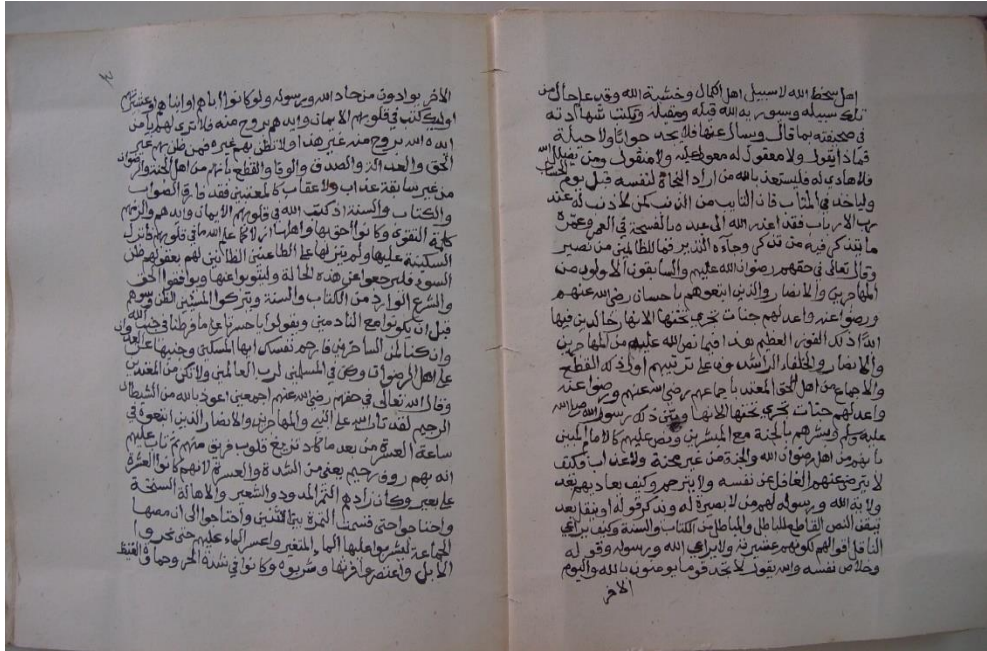 اهل سخط الله لا سبيل اهل الكمال وخشية الله وقد علم حال من
تلك سبيله وسيوريه الله قيله ومقيله وتكتب شهادته
في صحيفته بما قال ويسال عنها فلا يجد جوابا ولا حيلة
فماذا يقول ولا معقول له معول عليه ولا منقول ومن يضلل الله
فلا هادي له فليستعذ بالله من اراد النجاة لنفسه قبل يوم الحساب
ولياخذ في المتاب فان التايب من الذنب كمن لا ذنب له عند
رب الارباب فقد اعذر الله الى عبده بالفسحة في العمر وعمره
ما يتذكر فيه من تذكر وجاءه النذير فما للظالمين من نصير
وقال تعالى في حقهم رضوان الله عليهم والسابقون الاولون من
المهاجرين والانصار والذين اتبعوهم باحسان رضي الله عنهم
ورضوا عنه واعد لهم جنات تجري تحتها الانهار خالدين فيها
ابدا ذلك الفوز العظيم هذا فيما نص الله عليه من المهاجرين
والانصار والخلفاء الراشدون على ترتيبهم اولا ذلك القطع
والاجماع من اهل الحق المعتد باجماعهم رضي الله عنهم ورضوا عنه
واعد لهم جنات تجري تحتها الانهار وبين ذلك رسول الله صلى الله
عليه وسلم وبشرهم بالجنة مع المبشرين ونص عليهم كالامام المبين
بانهم من اهل رضوان الله والجنة من غير محنة ولا عذاب فكيف
لا يترضى عنهم الغافل عن نفسه ولا يترحم وكيف يعاديهم بعد
ولاية الله ورسوله لهم من لا بصيرة له ويذكر قولة او ينقل بعد
تيقن النص القاطع للباطل والمباطل من الكتاب والسنة وكيف يراعي
الناقل اقوالهم لكونهم عشيرته ولا يراعي الله ورسوله وقوله
وخلاص نفسه والله يقول لا تجد قوما يومنون بالله واليوم
الاخر
الاخر يوادون من حاد الله ورسوله ولو كانوا اباهم او ابناهم او عشيرتهم
اوليك كتب في قلوبهم الايمان وايدهم بروح منه فلا ترى لهم يا من
ايده الله بروح منه غير هذا ولا تظن بهم غيره فمن ظن بهم غير
الحق والعدالة والصدق والوفا والقطع بانهم من اهل الجنة والرضوان
من غير سابقة عذاب ولا عقاب كالمعتبين فقد فارق الصواب
والكتاب والسنة اذ كتب الله في قلوبهم الايمان وايدهم والزمهم
كلمة التقوى وكانوا احق بها واهلها ازلا كما علم الله ما في قلوبهم فانزل
السكينة عليها ولم ينزلها على الطاعنين الظانين لهم بعقولهم ظن
السوء فليرجعوا عن هذه الحالة وليتوبوا عنها ويوافقوا الحق
والشرع الوارد من الكتاب والسنة ويتركوا المسيئين الظن وسوءهم
قبل ان يكونوا مع النادمين ويقولوا يا حسرتا على ما فرطنا في جنب الله وان
وان كنا لمن الساخرين فارحم نفسك ايها المسكين وجنبها عن البعد
على اهل الرضوان وكن في المسلمين لرب العالمين ولا تكن من المعتدين
وقال الله تعالى في حقهم رضي الله عنهم اجمعين اعوذ بالله من الشيطان
الرجيم لقد تاب الله على النبي والمهاجرين والانصار الذين اتبعوه في
ساعة العسرة من بعد ما كاد تزيغ قلوب فريق منهم ثم تاب عليهم
انه بهم روف رحيم يعني من الشدة والعسرة لانهم كانوا العشرة
على بعير وكان زادهم التمر المدود والشعير والاهالة السنخة
واحتاجوا حتى قسمت التمرة بين الاثنين واحتاجوا الى ان مصها
الجماعة ليشربوا عليها الماء المتغير واعسر الماء عليهم حتى نحروا
الابل واعتصروا فرثها وشربوه وكانوا في شدة الحر وحماة القيظ